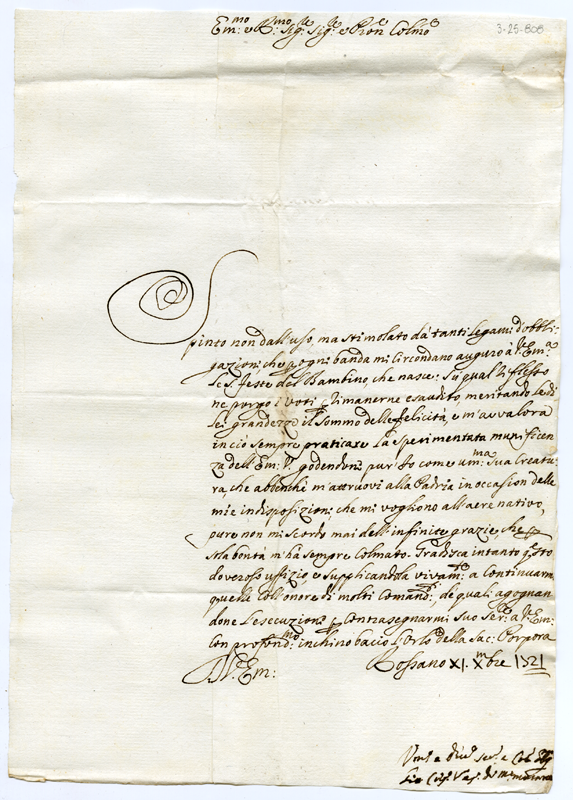 Em:mo e R:mo Sig:re Sig:re e Pron Colmo
3-25-808
Spinto non dall'uso, ma stimolato dà tanti legami d'obbli-
gazioni che p ogni banda mi Circondano auguro à V: Em:a
le S. feste del Bambino, che nasce: Sù qual riflesso
ne purgo i voti p rimanerne esaudito, meritando le di
lei grandezze il sommo delle felicità, e m'avvalora
in ciò sempre praticare la sperimentata munificen
za dell'Em: V. godendone pur Io come um:ma sua Creatu-
ra, che abbenche m'attruovi alla Padria in occasion delle
mie indisposizioni che mi vogliono all'aere nativo,
pure non mi scordo mai dell'infinite grazie, che p
sola bontà m'hà sempre Colmato. Gradisca intanto questo
doveroso uffizio, e supplicandola vivam:te a Continuarmi
quelle coll'onore di molti Comandi, de quali agognan
done l'esecuzione p Contrasegnarmi suo Ser:e a V: Em:
Con profond:mo inchino bacio l'Orlo della Sac: Porpora
D.V. Em:
Rossano XI. Xmbre 1721